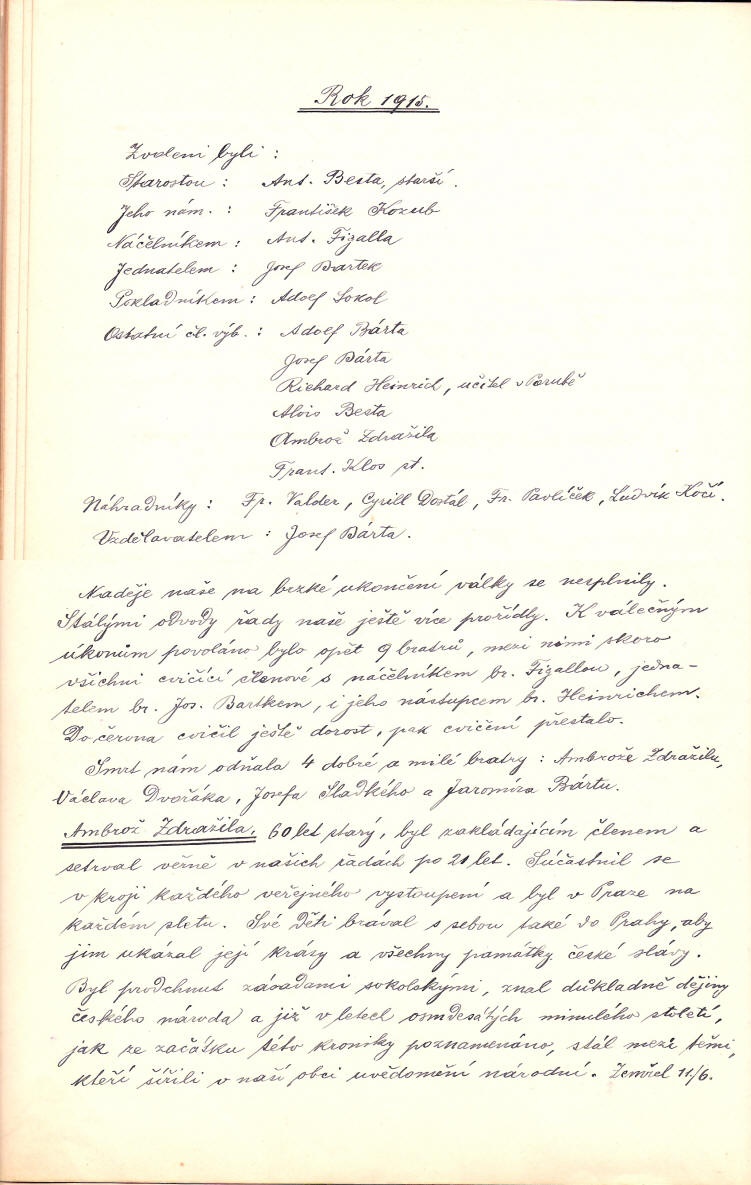 Rok 1915.
Zvoleni byli :
Starostou : Ant. Besta, starší.
Jeho nám. : František Kozub
Náčelníkem : Ant. Figalla
Jednatelem : Josef Bartek
Pokladníkem : Adolf Sokol
Ostatní čl. výb. : Adolf Bárta
Josef Bárta
Richard Heinrich, učitel v Porubě
Alois Besta
Ambrož Zdražila
Frant. Klos st.
Náhradníky : Fr. Valder, Cyrill Dostál, Fr. Pavlíček, Ludvík Kočí.
Vzdělavatelem : Josef Bárta.
Naděje naše na brzké ukončení války se nesplnily.
Stálými odvody řady naše ještě více prořídly. K válečným
úkonům povoláno bylo opět 9 bratrů, mezi nimi skoro
všichni cvičící členové s náčelníkem br. Figallou, jedna-
telem br. Jos. Bartkem, i jeho nástupcem br. Heinrichem.
Do června cvičil ještě dorost, pak cvičení přestalo.
Smrt nám odňala 4 dobré a milé bratry : Ambrože Zdražilu,
Václava Dvořáka, Josefa Sladkého a Jaromíra Bártu.
Ambrož Zdražila, 60 let starý, byl zakládajícím členem a
setrval věrně v našich řadách po 21 let. Súčastnil se
v kroji každého veřejného vystoupení a byl v Praze na
každém sletu. Své děti brával s sebou také do Prahy, aby
jim ukázal její krásy a všechny památky české slávy.
Byl prodchnut zásadami sokolskými, znal důkladně dějiny
českého národa a již v letech osmdesátých minulého století,
jak ze začátku této kroniky poznamenáno, stál mezi těmi,
kteří šířili v naší obci uvědomění národní. Zemřel 11./6.